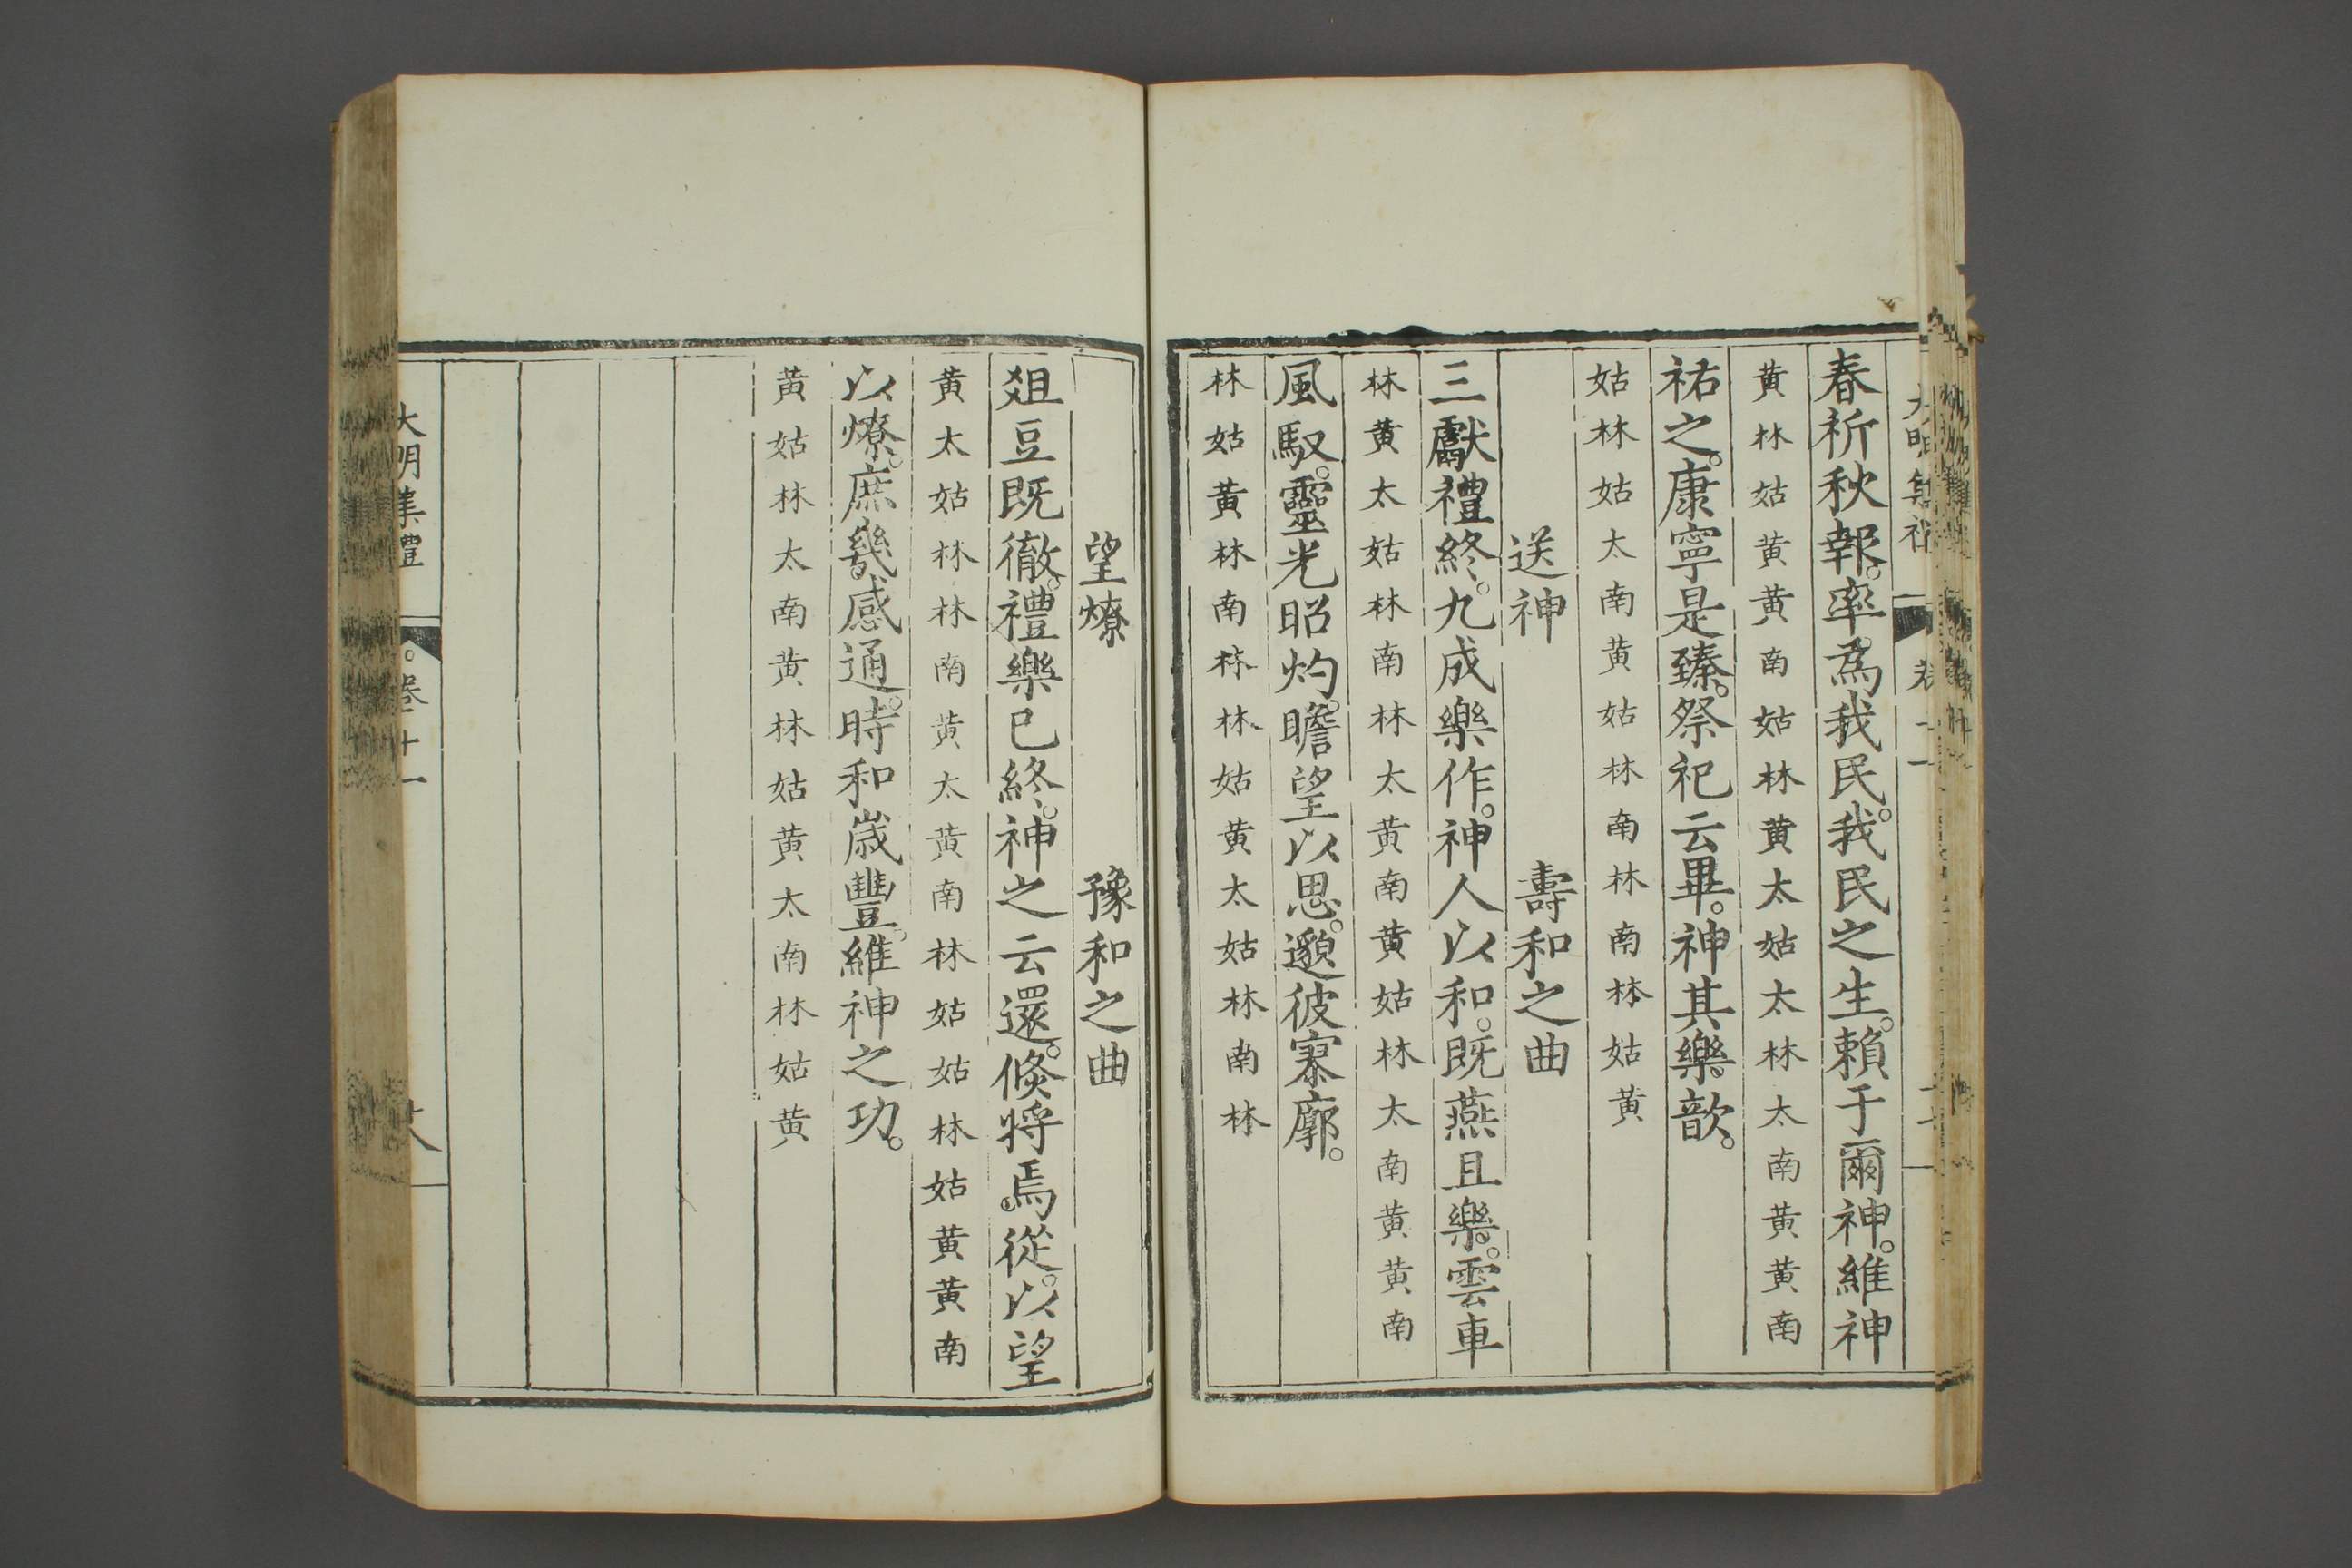 春祈秋報。率。為我民。我民之生。賴于爾神。維神
黃林姑黃黃南姑林黃太姑太林太南黃黃南
祐之。康寧是臻。祭祀云畢。神其樂歆。
姑林姑太南黃姑林南林南林姑黃
送神　壽和之曲
三獻禮終。九成樂作。神人以和。既燕且樂。雲車
林黃太姑林南林太黃南黃姑林太南黃黃南
風馭。靈光昭灼。瞻望以思。邈彼寥廓。
林姑黃林南林林姑黃太姑林南林
望燎　豫和之曲
俎豆既徹。禮樂已終。神之云還。倐將焉從。以望
黃太姑林林南黃太黃南林姑姑林姑黃黃南
以燎。庶幾感通。時和歲豐。維神之功。
黃姑林太南黃林姑黃太南林姑黃
大明集禮　卷十一　廿八